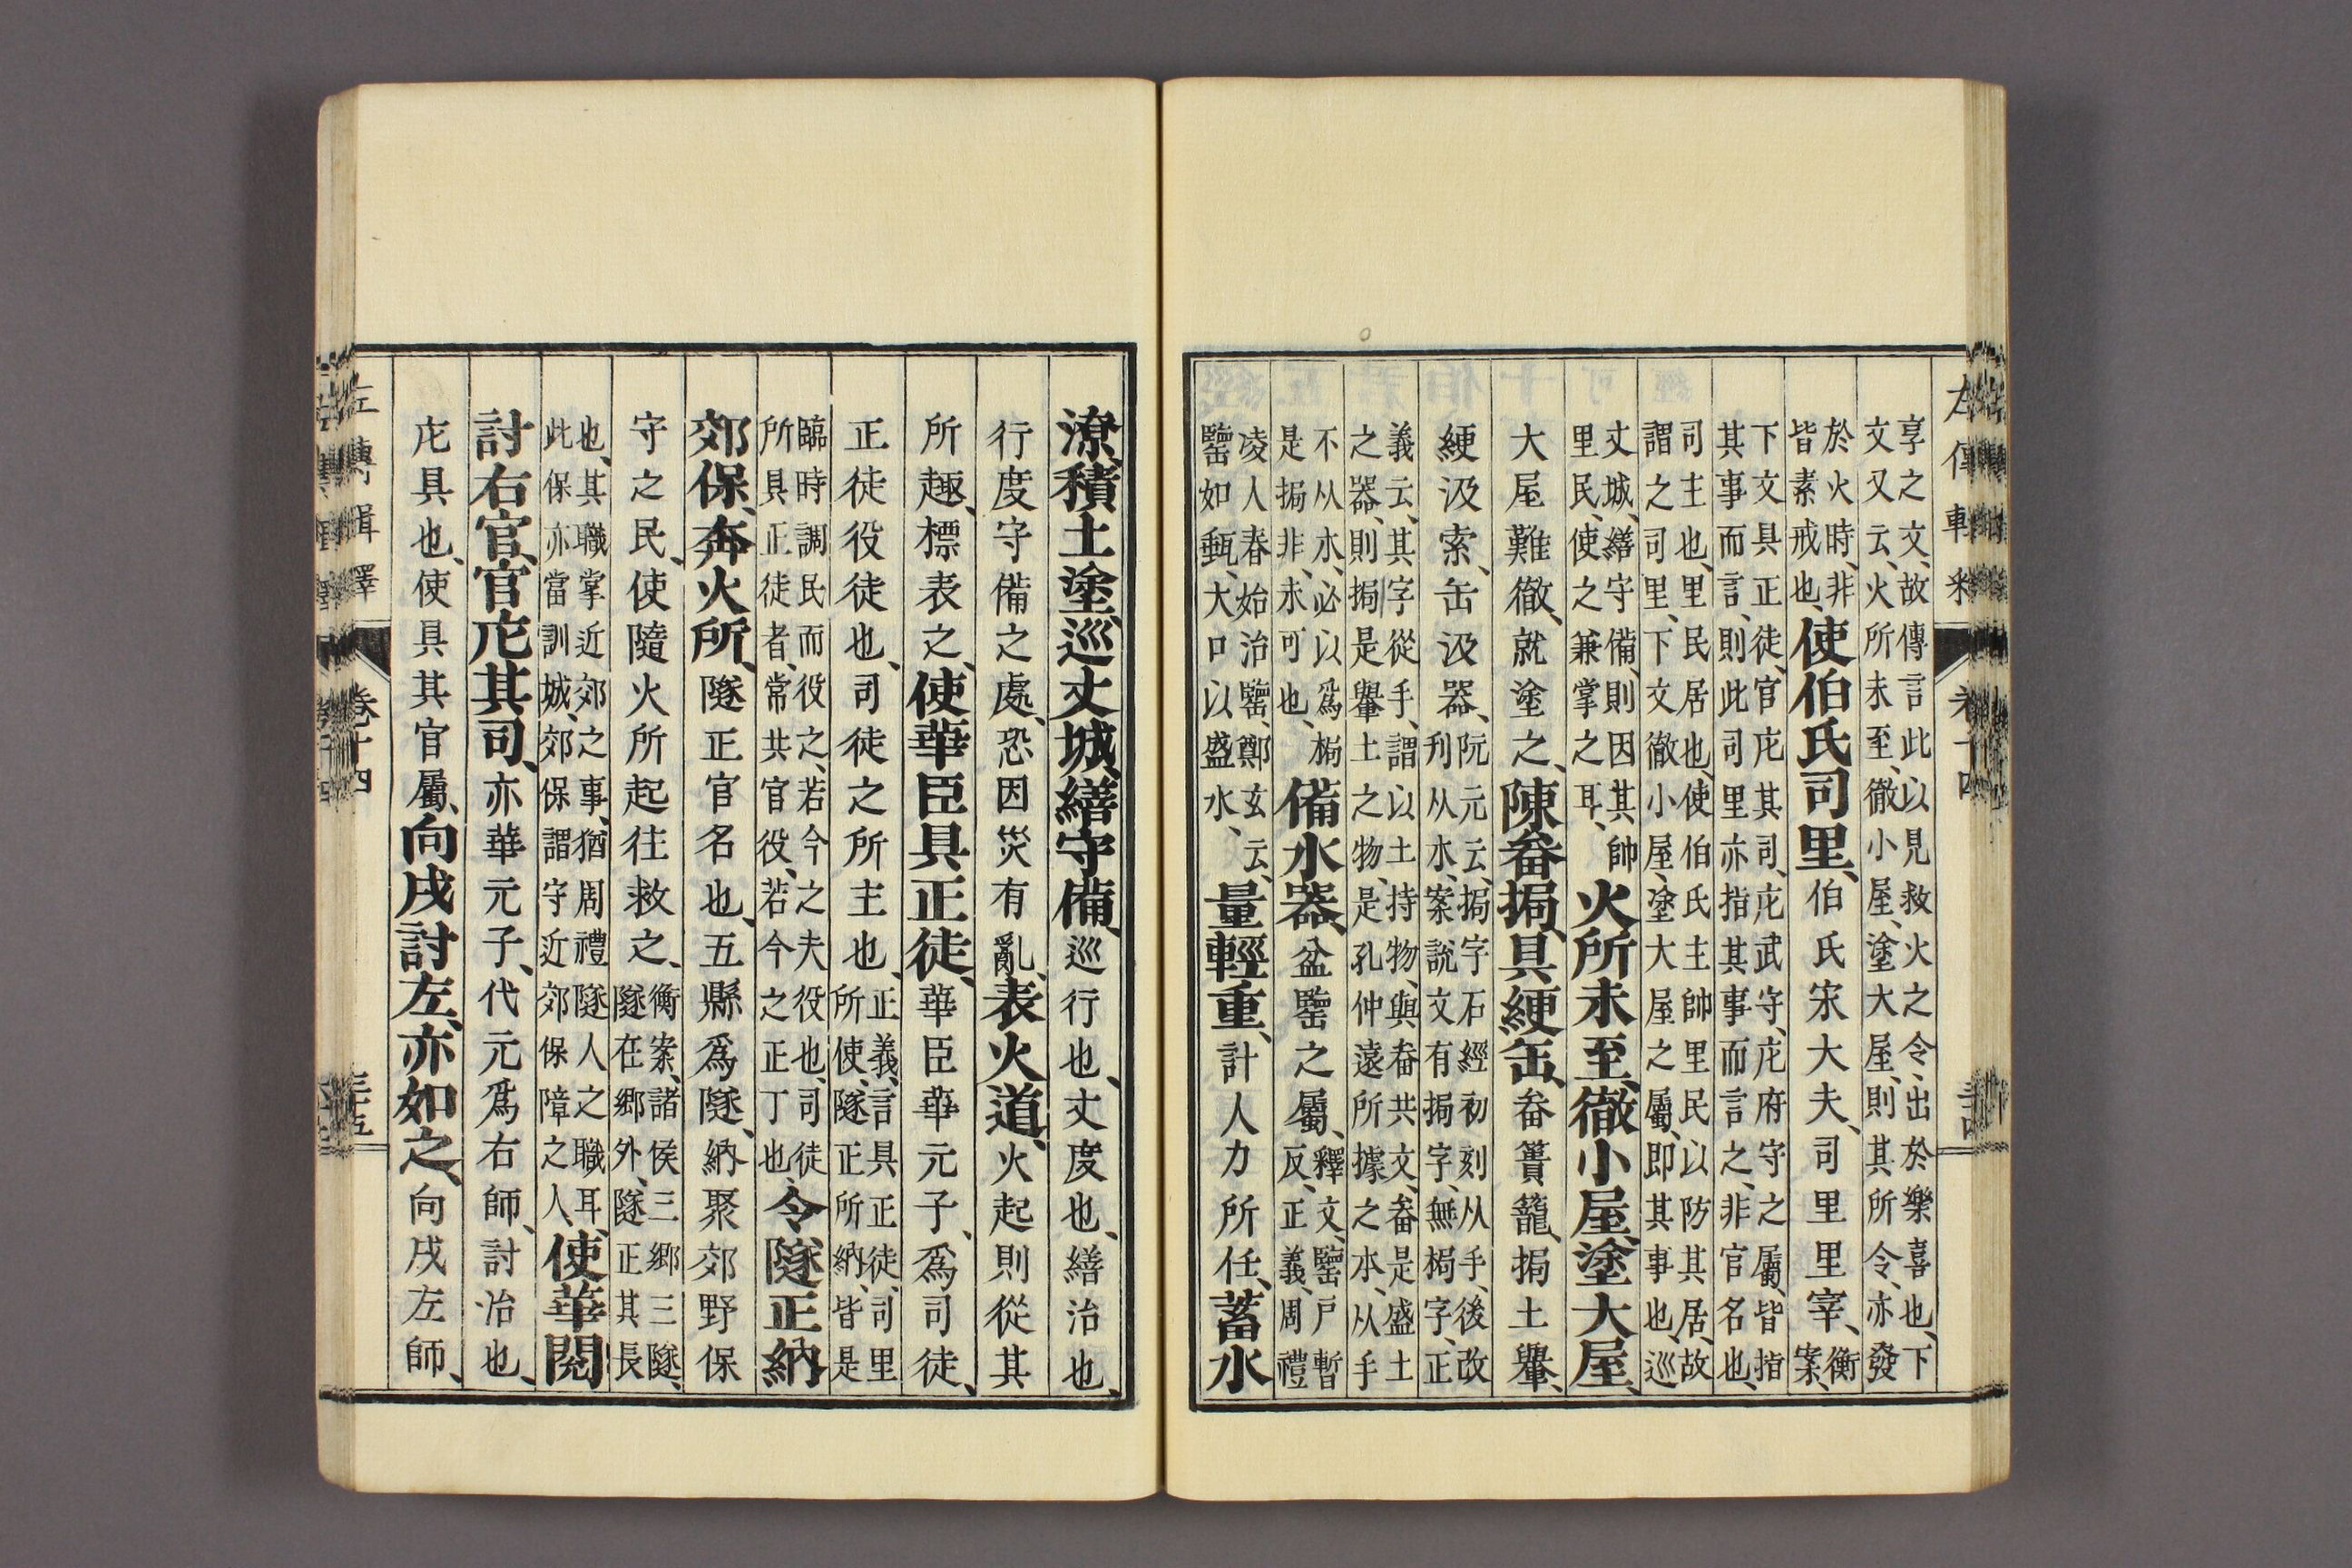 左傳輯釋 卷十四
享之文、故傳言此以見救火之令、出於樂喜也、下
文又云、火所未至、徹小屋、塗大屋、則其所令、亦發
於火時、非皆素戒也、使伯氏司里、伯氏宋大夫、司里里宰、衡案、
下文具正徒、官庀其司、庀武守、庀府守之屬、皆指
其事而言、則此司里亦指其事而言之、非官名也、
司主也、里民居也、使伯氏主帥里民以防其居、故
謂之司里、下文徹小屋、塗大屋之屬、即其事也、巡
丈城、繕守備、則因其帥里民、使之兼掌之耳、火所未至、徹小屋、塗大屋、
大屋難徹、就塗之、陳畚挶、具綆缶、畚簣籠、挶土轝、
綆汲索、缶汲器、阮元云、挶字石經初刻从手、後改刋从木、案說文有挶字、無梮字、正
義云、其字從手、謂以土持物、與畚共文、畚是盛土
之器、則挶是轝土之物、是孔仲遠所據之本、从手
不从木、必以爲梮是挶非、未可也、備水器、盆鑒之屬、釋文、鑒戸暫反、正義、周禮
凌人春始治鑒、鄭玄云、鑒如甀、大口以盛水、量輕重、計人力所任、蓄水
潦、積土塗、巡丈城、繕守備、巡行也、丈度也、繕治也、
行度守備之處、恐因災有亂、表火道、火起則從其
所趣、標表之、使華臣具正徒、華臣華元子、爲司徒、
正徒役徒也、司徒之所主也、正義、言具正徒、司里所使、隧正所納、皆是
臨時調民而役之、若今之夫役也、司徒所具正徒者、常共官役、若今之正丁也、令隧正納
郊保、奔火所、隧正官名也、五縣爲隧、納聚郊野保
守之民、使隨火所起往救之、衡案、諸侯三郷三隧、隧在郷外、隧正其長
也、其職掌近郊之事、猶周禮隧人之職耳、此保亦當訓城、郊保謂守近郊保障之人、使華閱
討右官、官庀其司、亦華元子、代元爲右師、討治也、
庀具也、使具其官屬、向戌討左、亦如之、向戌左師、
左傳輯釋 卷十四 三十五